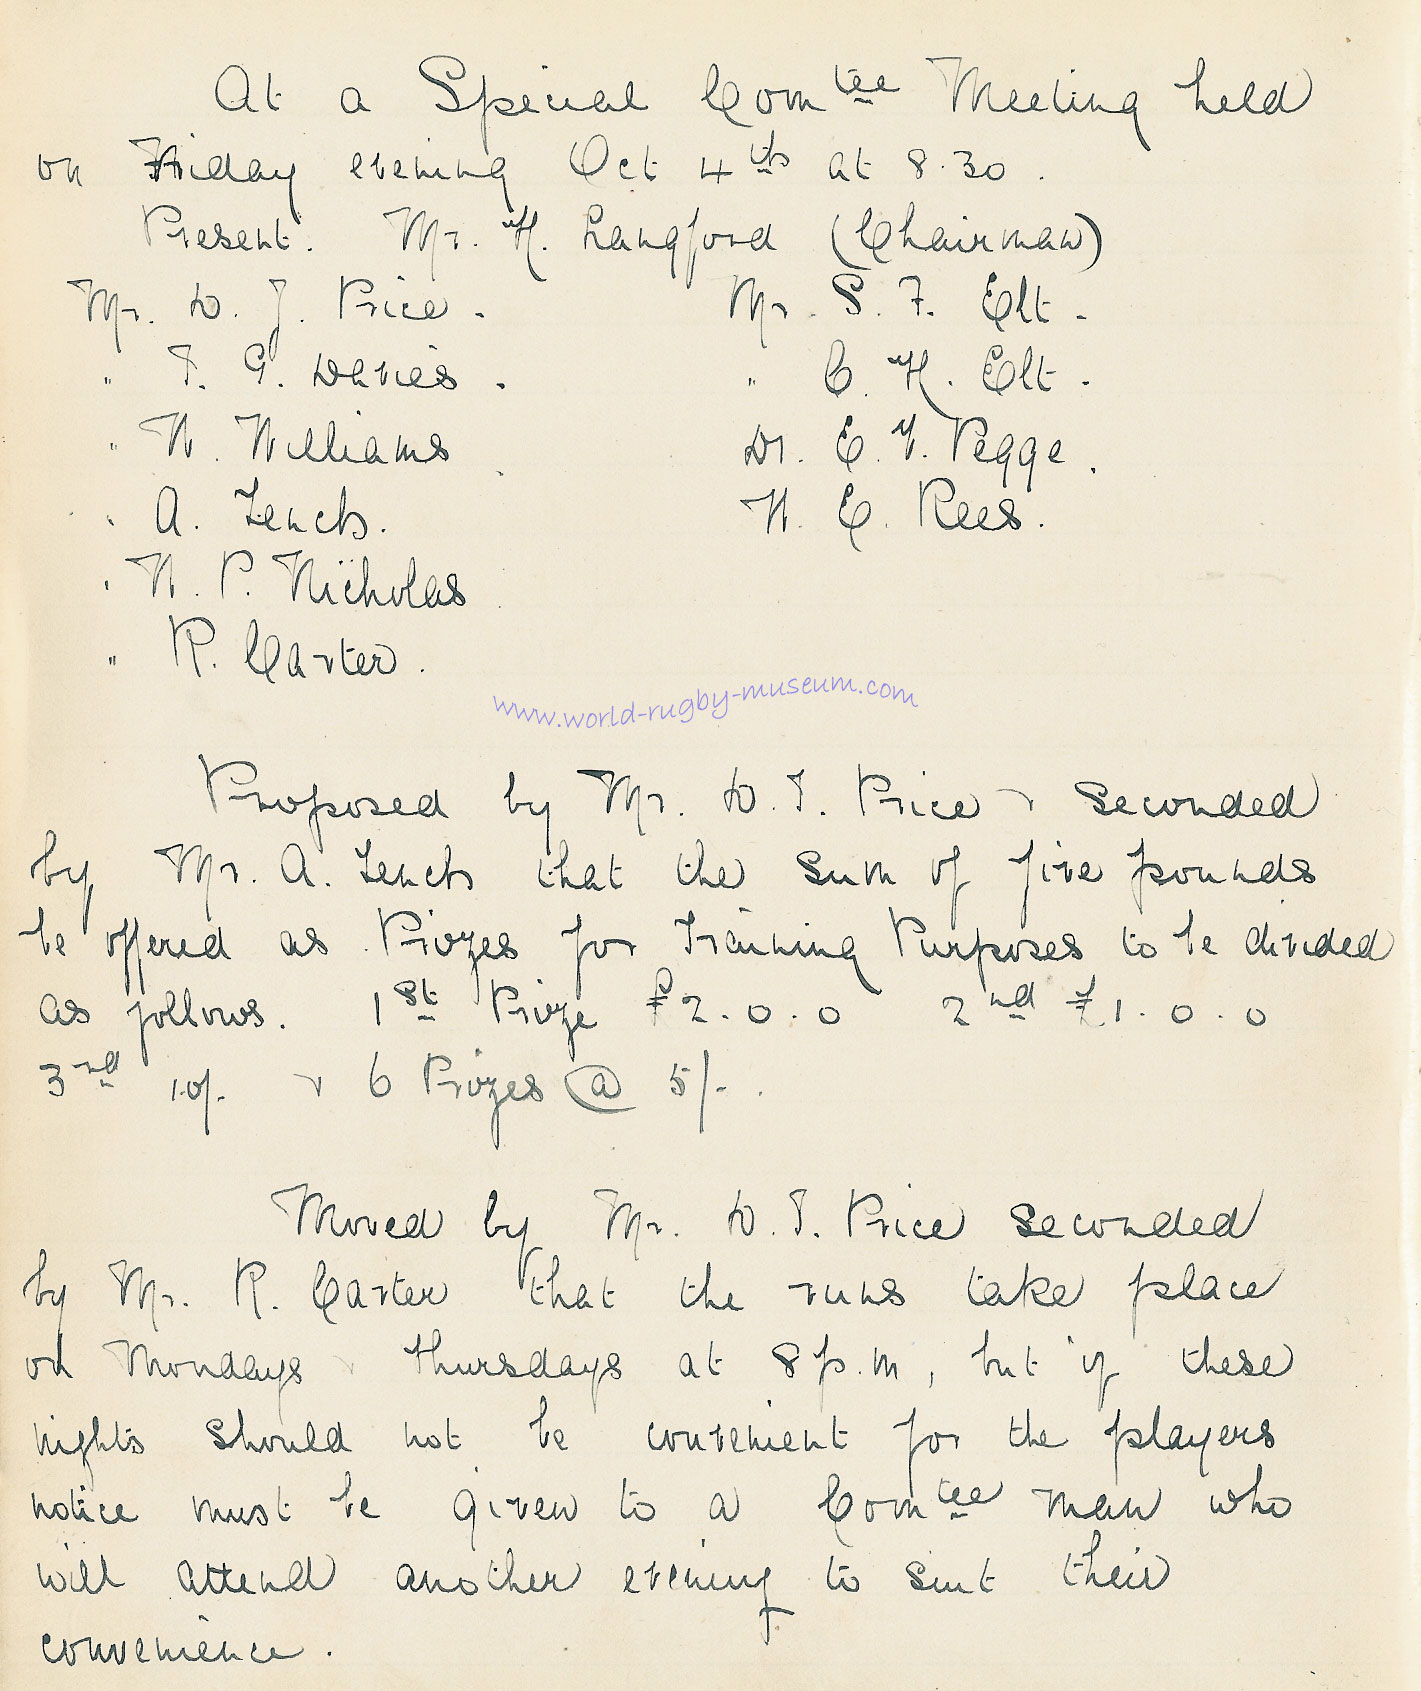 At a Special Com^tee Meeting held
on Friday evening Oct 4th at 8.30.
Present. Mr. H. Langford (Chairman)
Mr. D. J. Price. Mr. S. F. Elt.
" T. G. Davies. " C. H. Elt.
" W. Williams. Dr. E. V. Pegge.
" A. Tench. W. E. Rees.
" W. P. Nicholas
" R. Carter.
www.world-rugby-museum.com
Proposed by Mr. D. J. Price & Seconded
by Mr. A. Tench that the sum of five pounds
be offered as Prizes for Training Purposes to be divided
as follows. 1st Prize £2.0.0 2nd £1.0.0
3rd 10/. & 6 Prizes @ 5/-.
Moved by Mr. D. J. Price Seconded
by Mr. R. Carter that the runs take place
on Mondays & Thursdays at 8 p.m, but if these
nights should not be convenient for the players
notice must be given to a Com^tee man who
will attend another evening to suit their
convenience.